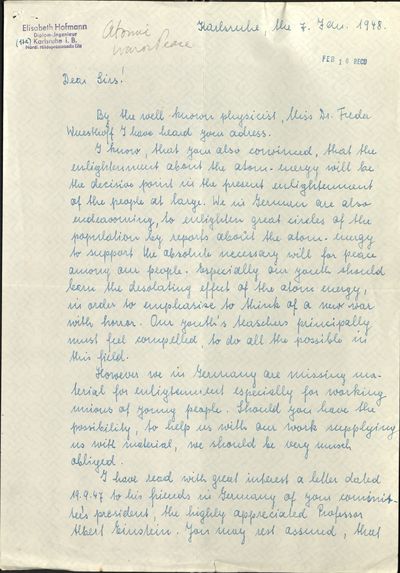 Elisabeth Hofmann
Diplom-Ingenieur
Karlsruhe i. B.
Atomic
War or Peace
Karlsruhe, the 7. Jan. 1948.
FEB 10 RECD
Dear Sirs!
By the well known physicist, Miss Dr. Freda
Wuesthoff I have heard your adress.
I know, that you also convinced, that the
enlightenment about the atom-energy will be
the decisive point in the present enlightenment
of the people at large. We in German are also
endeavouring, to enlighten great circles of the
population by reports about the atom-energy
to support the absolute necessary will for peace
among our people. Especially our youth should
learn the desolating effect of the atom energy,
in order to emphasize to think of a new war
with horror. Our youth's teachers principally
must feel compelled, to do all the possible in
this field.
However we in Germany are missing ma-
terial for enlightenment especially for working
unions of young people. Should you have the
possibility, to help us with our work supplying
us with material, we should be very much
obliged.
I have read with great interest a letter dated
19.9.47 to his friends in Germany of your committ-
ee's president, the highly appreciated Professor
Albert Einstein. You may rest assured, that